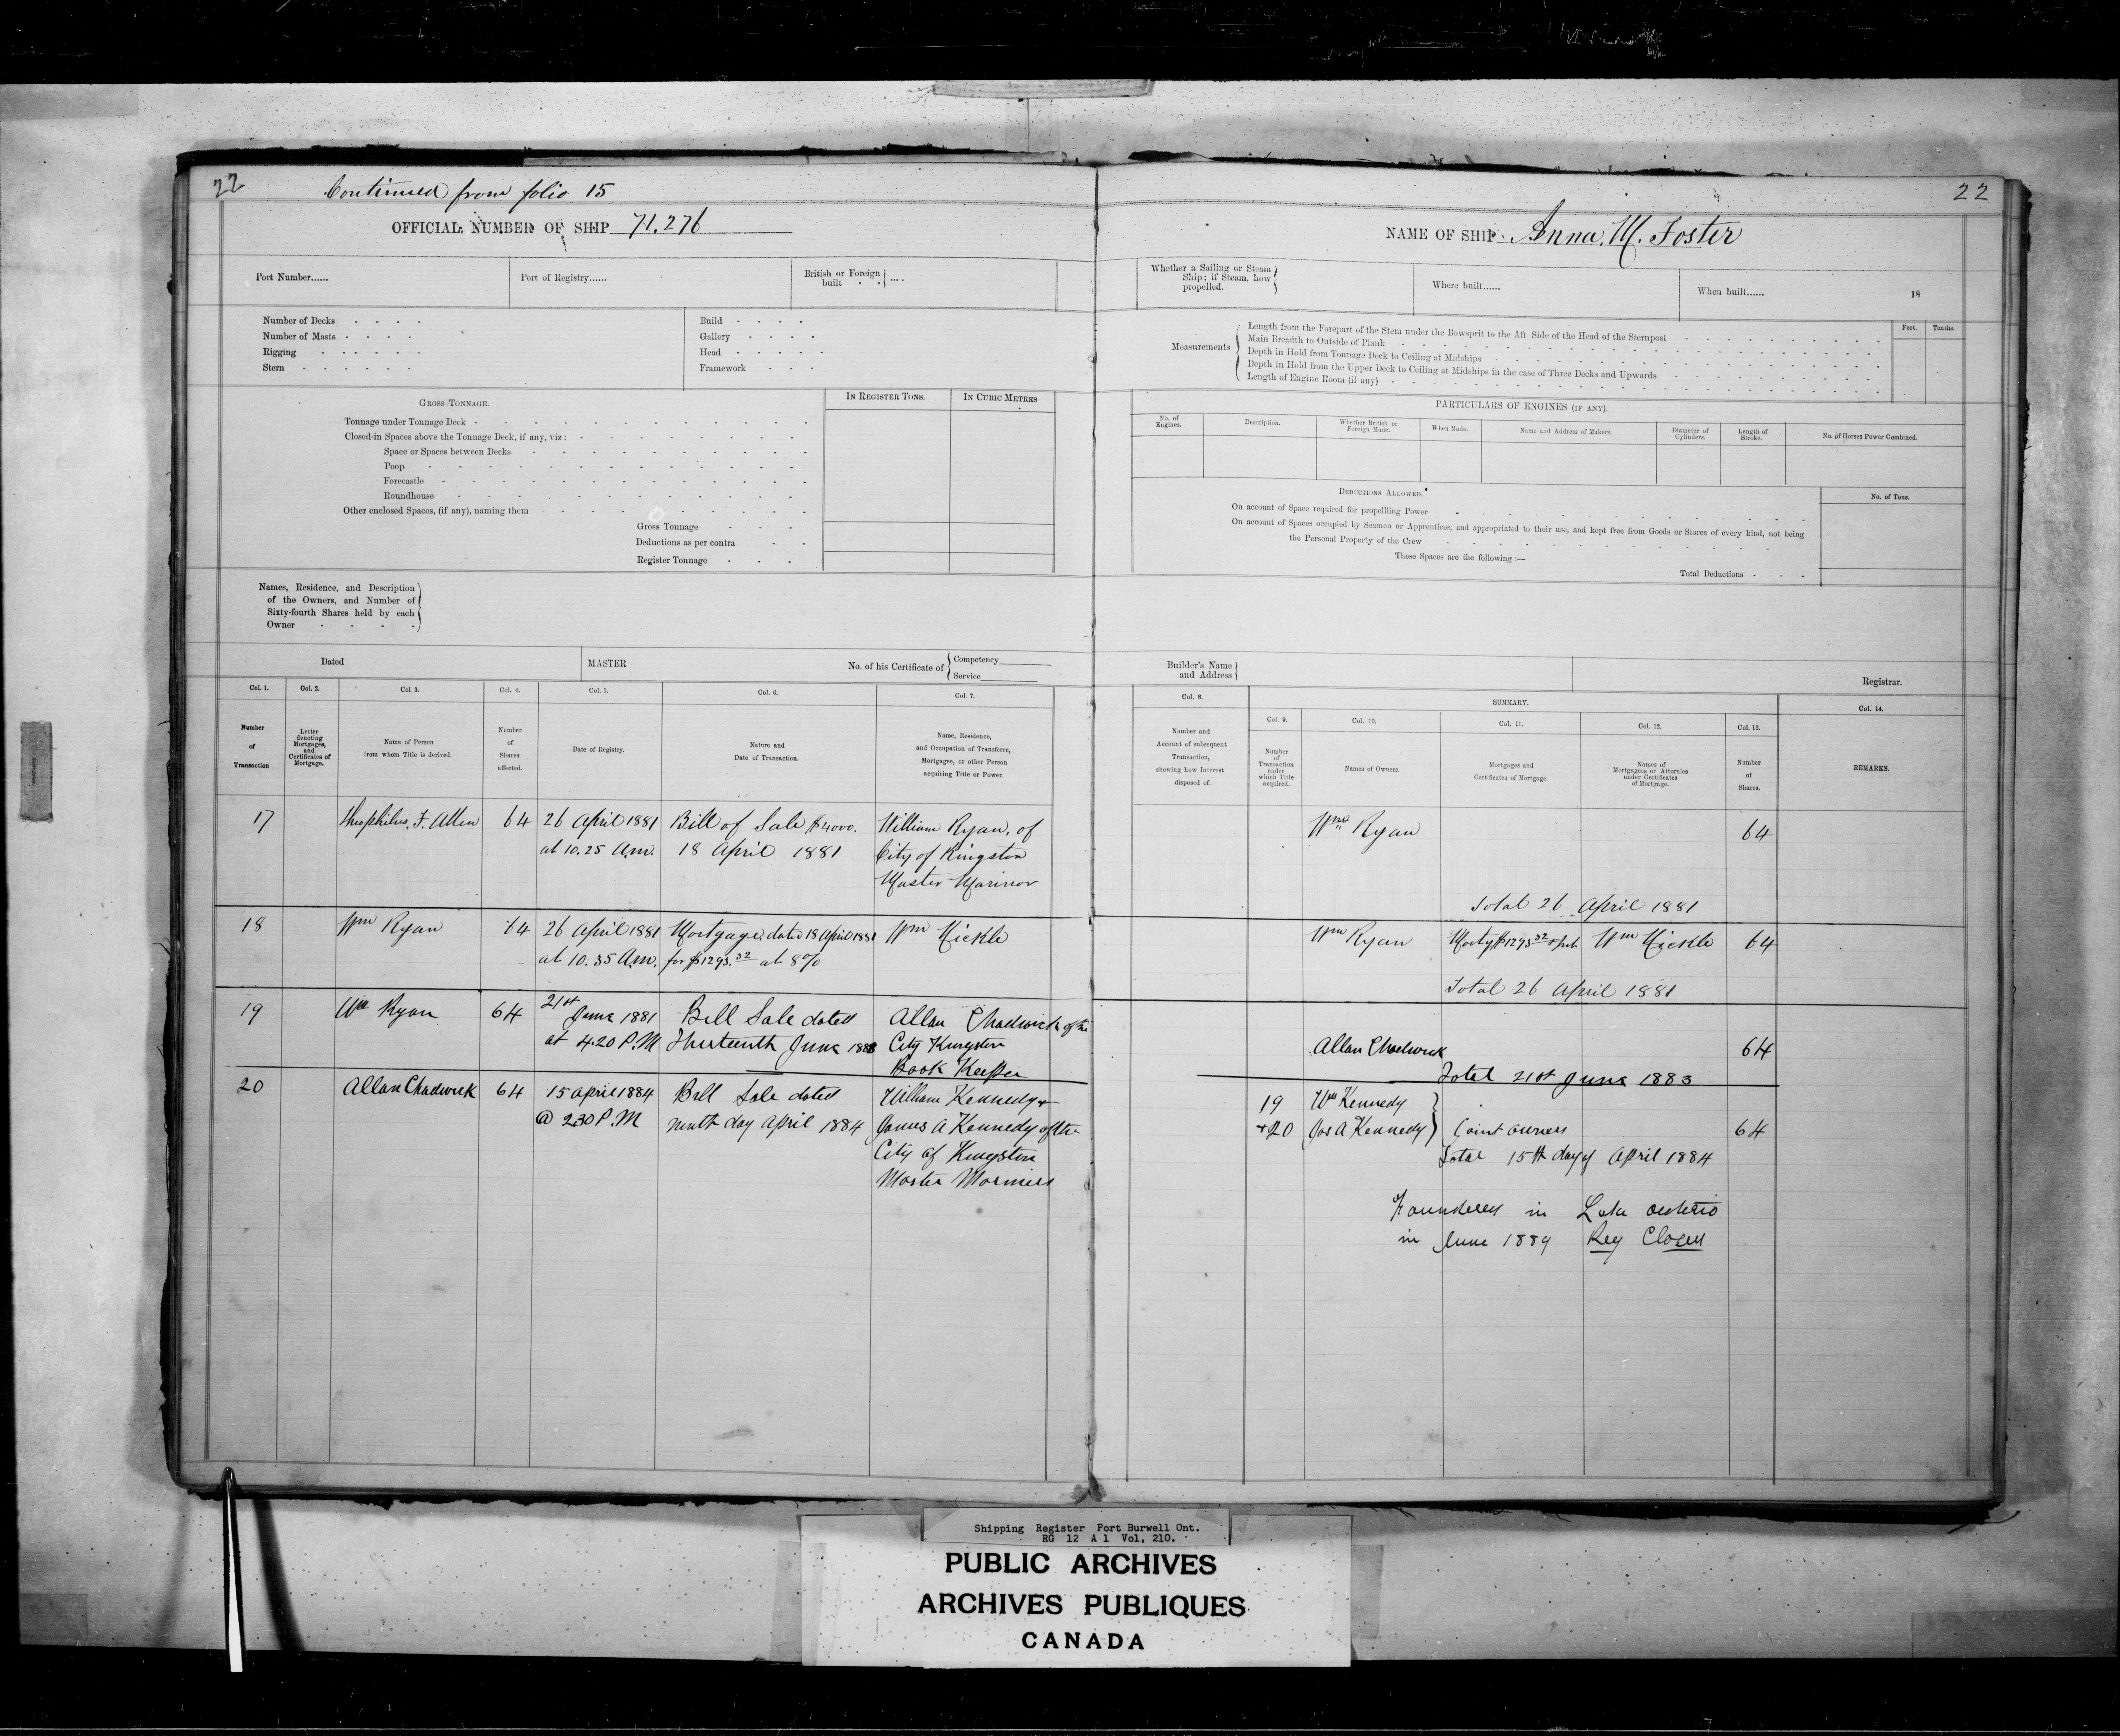 22
Continued from folio 15
OFFICIAL NUMBER OF SHIP 71.276
Port Number......
Port of Registry......
British or Foreign built - - } ....
Number of Decks - - - -
Number of Masts - - - -
Rigging - - - - - -
Stern - - - - - -
Build - - - -
Gallery - - - -
Head - - - - -
Framework - - -
GROSS TONNAGE.
IN REGISTER TONS.
IN CUBIC METRES
Tonnage under Tonnage Deck
Closed-in Spaces above the Tonnage Deck, if any, viz:
Space or Spaces between Decks
Poop
Forecastle
Roundhouse
Other enclosed Spaces, (if any), naming them
Gross Tonnage
Deductions as per contra
Register Tonnage
Names, Residence, and Description
of the Owners, and Number of
Sixty-fourth Shares held by each
Owner
Dated
MASTER
No. of his Certificate of { Competency
Service
Col. 1.
Col. 2.
Col 3.
Col. 4.
Col. 5.
Col. 6.
Col. 7.
Number of Transaction
Letter denoting Mortgages, and Certificates of Mortgage.
Name of Person from whom Title is derived.
Number of Shares affected.
Date of Registry.
Nature and Date of Transaction.
Name, Residence, and Occupation of Transferee, Mortgagee, or other Person acquiring Title or Power.
17 Theophilus. F. Allen 64 26 April 1881 Bill of Sale $4000. William Ryan, of
at 10.25 A.m. 18 April 1881 City of Kingston
Master Marinor
18 Wm Ryan 64 26 April 1881 Mortgage dated 18 April 1881 Wm Mickle
at 10.35 A.m. for $1293.32 at 8%
19 Wm Ryan 64 21st June 1881 Bill Sale dated Allan Chadwick of the
at 4.20 P.M Thirteenth June City Kingston
Book Keeper
20 Allan Chadwick 64 15 April 1884 Bill Sale dated William Kennedy +
@ 2.30 P.M ninth day April 1884 James A Kennedy of the
City of Kingston
Master Mariners
22
NAME OF SHIP Anna. M. Foster
Whether a Sailing or Steam Ship; if Steam, how propelled.
Where built......
When built...... 18
Measurements
Length from the Forepart of the Stem under the Bowsprit to the Aft Side of the Head of the Sternpost
Main Breadth to Outside of Plank
Depth in Hold from Tonnage Deck to Ceiling at Midships
Depth in Hold from the Upper Deck to Ceiling at Midships in the case of Three Decks and Upwards
Length of Engine Room (if any)
Feet.
Tenths.
PARTICULARS OF ENGINES (IF ANY).
No. of Engines.
Description.
Whether British or Foreign Made.
When Made.
Name and Address of Makers.
Diameter of Cylinders.
Length of Stroke.
No. of Horses Power Combined.
DEDUCTIONS ALLOWED.
No. of Tons.
On account of Space required for propellling Power
On account of Spaces occupied by Seamen or Apprentices, and appropriated to their use, and kept free from Goods or Stores of every kind, not being
the Personal Property of the Crew
These Spaces are the following :—
Total Deductions
Builder's Name and Address
Registrar.
Col. 8.
SUMMARY.
Col. 14.
Col. 9.
Col. 10.
Col. 11.
Col. 12.
Col. 13.
Number and Account of subsequent Transaction, showing how Interest disposed of.
Number of Transaction under which Title acquired.
Names of Owners.
Mortgages and Certificates of Mortgage.
Names of Mortgagees or Attornies under Certificates of Mortgage.
Number of Shares.
REMARKS.
Wm Ryan 64
Total 26 April 1881
Wm Ryan Mortg $1293.32 Wm Mickle 64
Total 26 April 1881
Allan Chadwick 64
Total 21st June 1883
19 Wm Kennedy
+20 Jas A Kennedy } Joint owners 64
Total 15th day of April 1884
Foundered in Lake Ontario
in June 1889 Reg Closed
Shipping Register Port Burwell Ont.
RG 12 A 1 Vol, 210.
PUBLIC ARCHIVES
ARCHIVES PUBLIQUES
CANADA